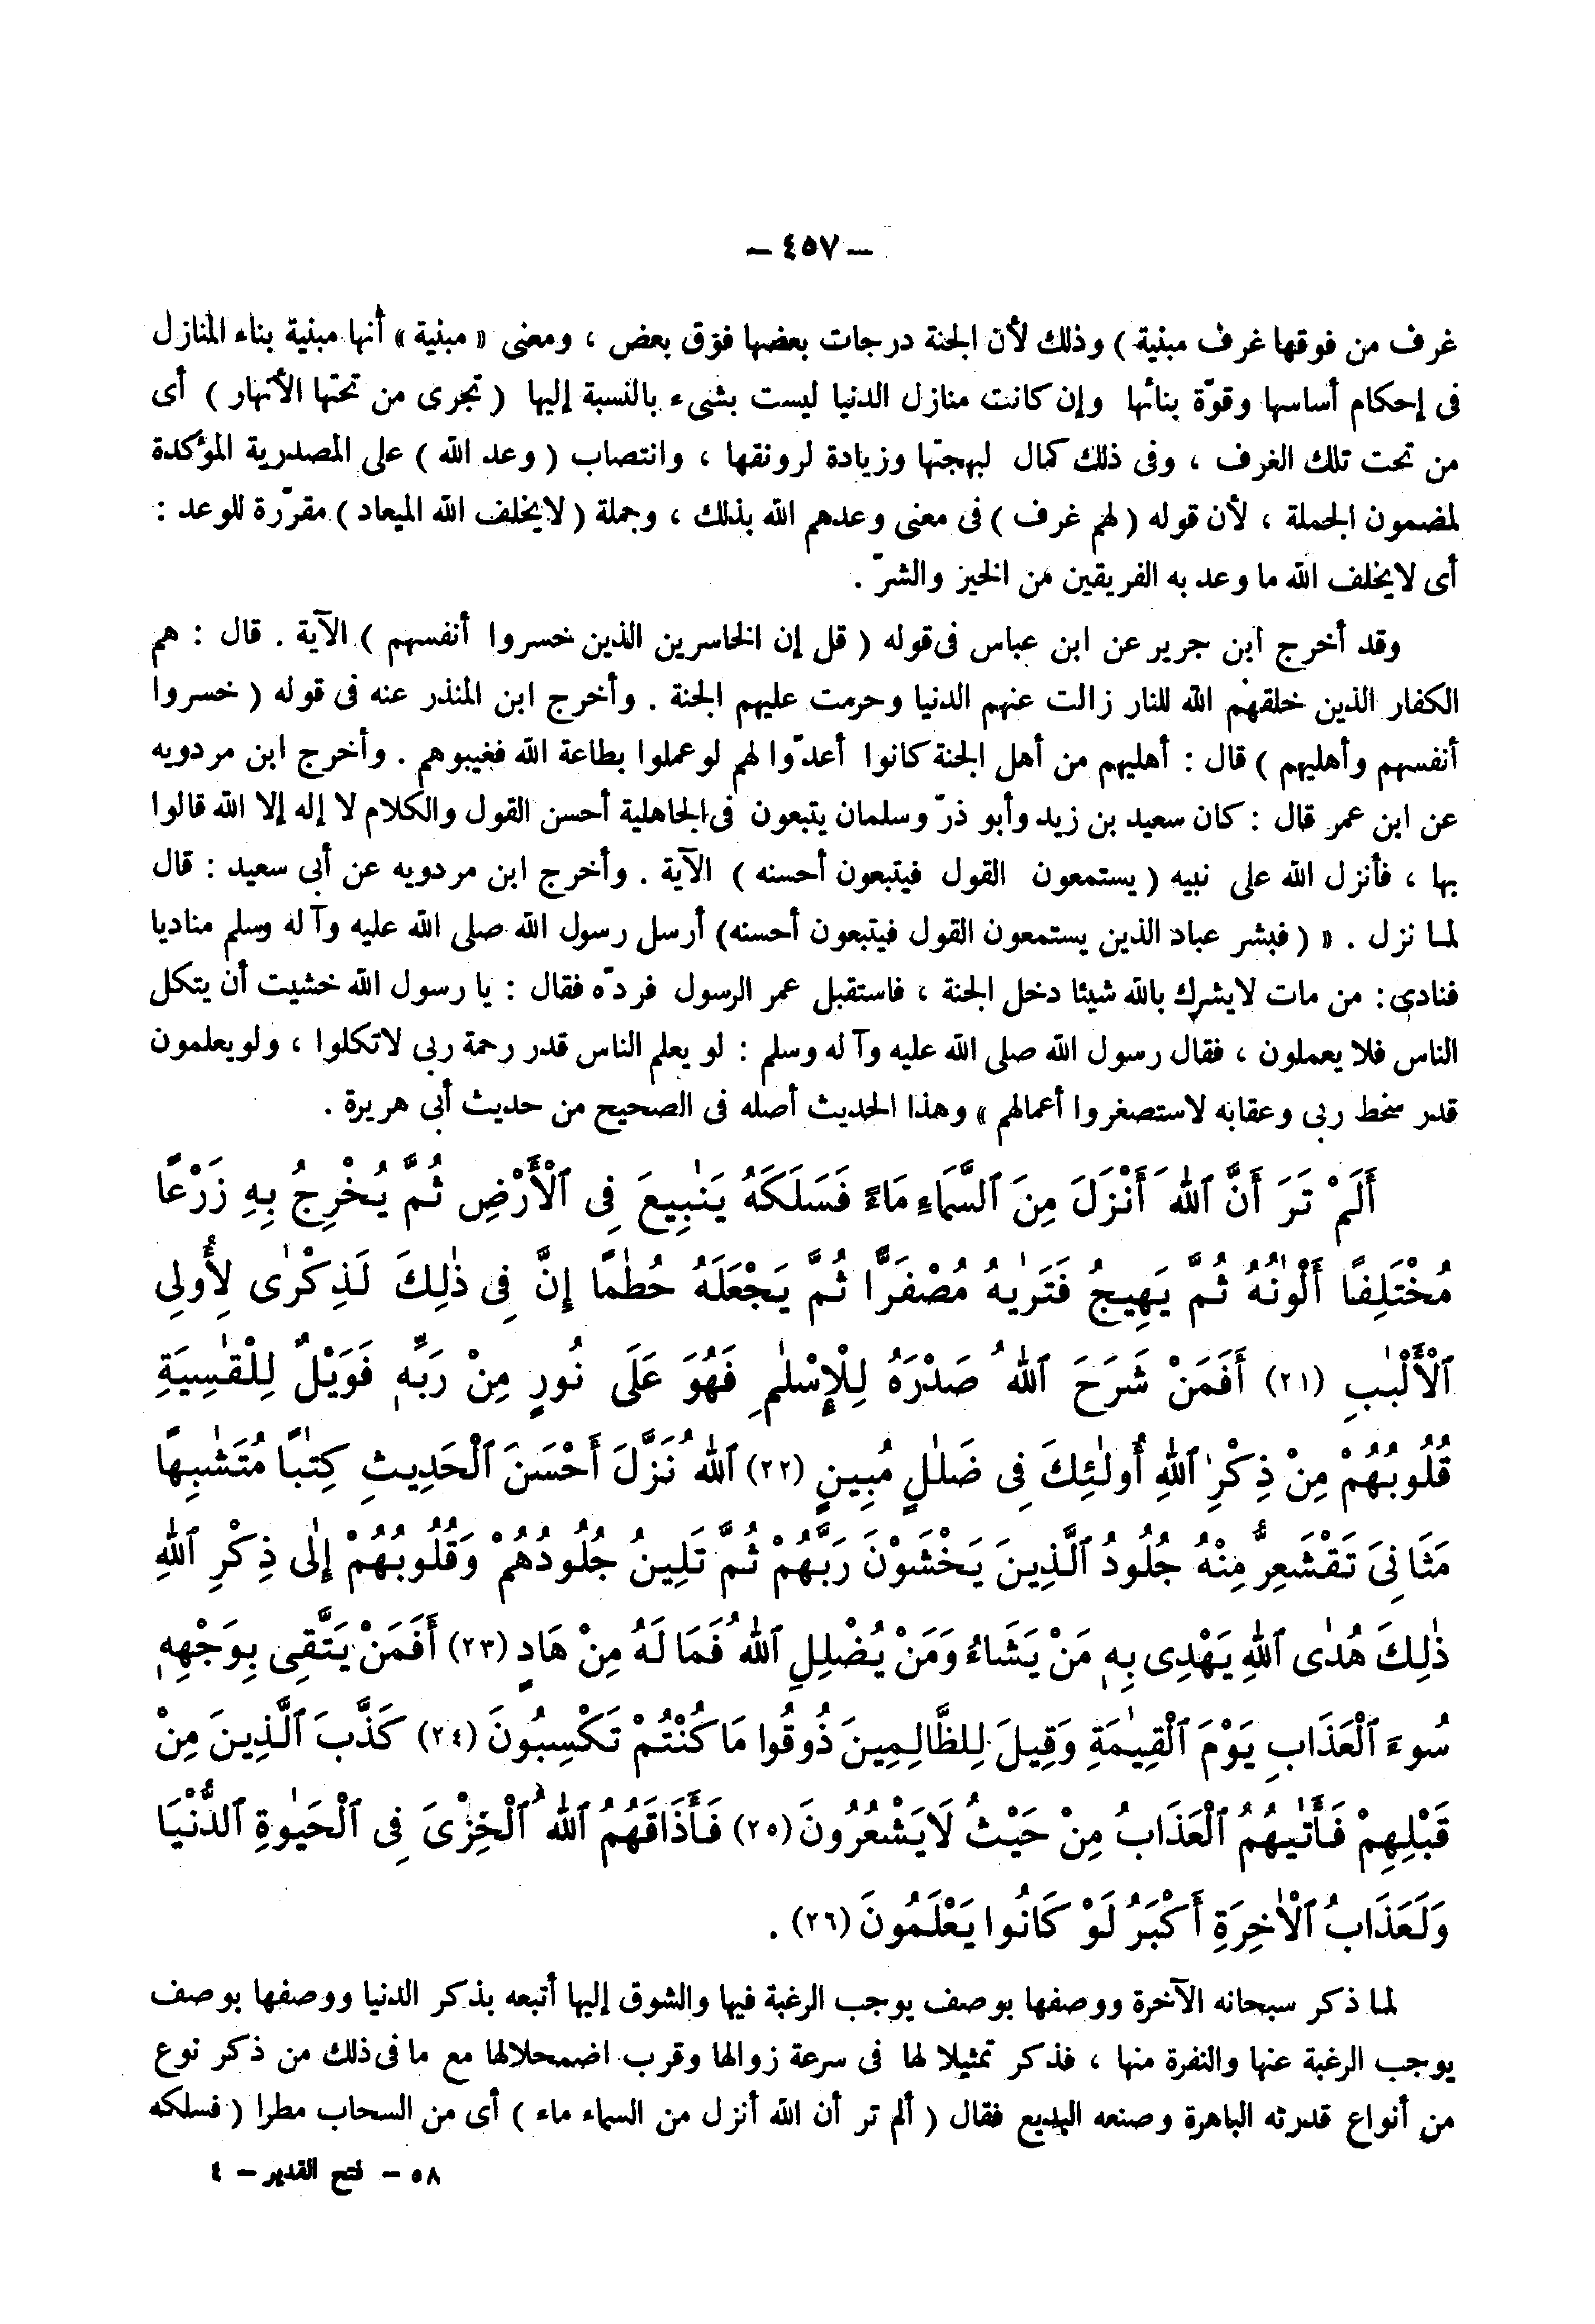 — ٤٥٧ —
غرف من فوقها غرف مبنية ) وذلك لأن الجنة درجات بعضها فوق بعض ، ومعنى « مبنية » أنها مبنية بناء المنازل
فى إحكام أساسها وقوّة بنائها وإن كانت منازل الدنيا ليست بشىء بالنسبة إليها ( تجرى من تحتها الأنهار ) أى
من تحت تلك الغرف ، وفى ذلك كمال لبهجتها وزيادة لرونقها ، وانتصاب ( وعد الله ) على المصدرية المؤكدة
لمضمون الجملة ، لأن قوله ( لهم غرف ) فى معنى وعدهم الله بذلك ، وجملة ( لايخلف الله الميعاد ) مقرّرة للوعد :
أى لايخلف الله ما وعد به الفريقين من الخير والشرّ .
وقد أخرج ابن جرير عن ابن عباس فى قوله ( قل إن الخاسرين الذين خسروا أنفسهم ) الآية . قال : هم
الكفار الذين خلقهم الله للنار زالت عنهم الدنيا وحرمت عليهم الجنة . وأخرج ابن المنذر عنه فى قوله ( خسروا
أنفسهم وأهليهم ) قال : أهليهم من أهل الجنة كانوا أعدّوا لهم لو عملوا بطاعة الله فغيبوهم . وأخرج ابن مردويه
عن ابن عمر قال : كان سعيد بن زيد وأبو ذرّ وسلمان يتبعون فى الجاهلية أحسن القول والكلام لا إله إلا الله قالوا
بها ، فأنزل الله على نبيه ( يستمعون القول فيتبعون أحسنه ) الآية . وأخرج ابن مردويه عن أبى سعيد : قال
لما نزل . « ( فبشر عباد الذين يستمعون القول فيتبعون أحسنه) أرسل رسول الله صلى الله عليه وآله وسلم مناديا
فنادى : من مات لايشرك بالله شيئا دخل الجنة ، فاستقبل عمر الرسول فردّه فقال : يا رسول الله خشيت أن يتكل
الناس فلا يعملون ، فقال رسول الله صلى الله عليه وآله وسلم : لو يعلم الناس قدر رحمة ربى لاتكلوا ، ولو يعلمون
قدر سخط ربى وعقابه لاستصغروا أعمالهم » وهذا الحديث أصله فى الصحيح من حديث أبى هريرة .
أَلَمْ تَرَ أَنَّ ٱللهَ أَنْزَلَ مِنَ ٱلسَّمَاءِ مَاءً فَسَلَكَهُ يَنٰبِيعَ فِى ٱلْأَرْضِ ثُمَّ يُخْرِجُ بِهِ زَرْعًا
مُخْتَلِفًا أَلْوٰنُهُ ثُمَّ يَهِيجُ فَتَرٰيهُ مُصْفَرًّا ثُمَّ يَجْعَلَهُ حُطٰمًا إِنَّ فِى ذٰلِكَ لَذِكْرٰى لِأُولِى
ٱلْأَلْبٰبِ (٢١) أَفَمَنْ شَرَحَ ٱللهُ صَدْرَهُ لِلْإِسْلٰمِ فَهُوَ عَلَى نُورٍ مِنْ رَبِّهِ فَوَيْلٌ لِلْقٰسِيَةِ
قُلُوبُهُمْ مِنْ ذِكْرِ ٱللهِ أُولٰئِكَ فِى ضَلٰلٍ مُبِينٍ (٢٢) ٱللهُ نَزَّلَ أَحْسَنَ ٱلْحَدِيثِ كِتٰبًا مُتَشٰبِهًا
مَثَانِىَ تَقْشَعِرُّ مِنْهُ جُلُودُ ٱلَّذِينَ يَخْشَوْنَ رَبَّهُمْ ثُمَّ تَلِينُ جُلُودُهُمْ وَقُلُوبُهُمْ إِلٰى ذِكْرِ ٱللهِ
ذٰلِكَ هُدٰى ٱللهِ يَهْدِى بِهِ مَنْ يَشَاءُ وَمَنْ يُضْلِلِ ٱللهُ فَمَا لَهُ مِنْ هَادٍ (٢٣) أَفَمَنْ يَتَّقِى بِوَجْهِهِ
سُوءَ ٱلْعَذَابِ يَوْمَ ٱلْقِيٰمَةِ وَقِيلَ لِلظَّالِمِينَ ذُوقُوا مَا كُنْتُمْ تَكْسِبُونَ (٢٤) كَذَّبَ ٱلَّذِينَ مِنْ
قَبْلِهِمْ فَأَتٰيهُمُ ٱلْعَذَابُ مِنْ حَيْثُ لَايَشْعُرُونَ (٢٥) فَأَذَاقَهُمُ ٱللهُ ٱلْخِزْىَ فِى ٱلْحَيٰوةِ ٱلدُّنْيَا
وَلَعَذَابُ ٱلْاٰخِرَةِ أَكْبَرُ لَوْ كَانُوا يَعْلَمُونَ (٢٦) .
لما ذكر سبحانه الآخرة ووصفها بوصف يوجب الرغبة فيها والشوق إليها أتبعه بذكر الدنيا ووصفها بوصف
يوجب الرغبة عنها والنفرة منها ، فذكر تمثيلا لها فى سرعة زوالها وقرب اضمحلالها مع ما فى ذلك من ذكر نوع
من أنواع قدرته الباهرة وصنعه البديع فقال ( ألم تر أن الله أنزل من السماء ماء ) أى من السحاب مطرا ( فسلكه
٥٨ — فتح القدير — ٤